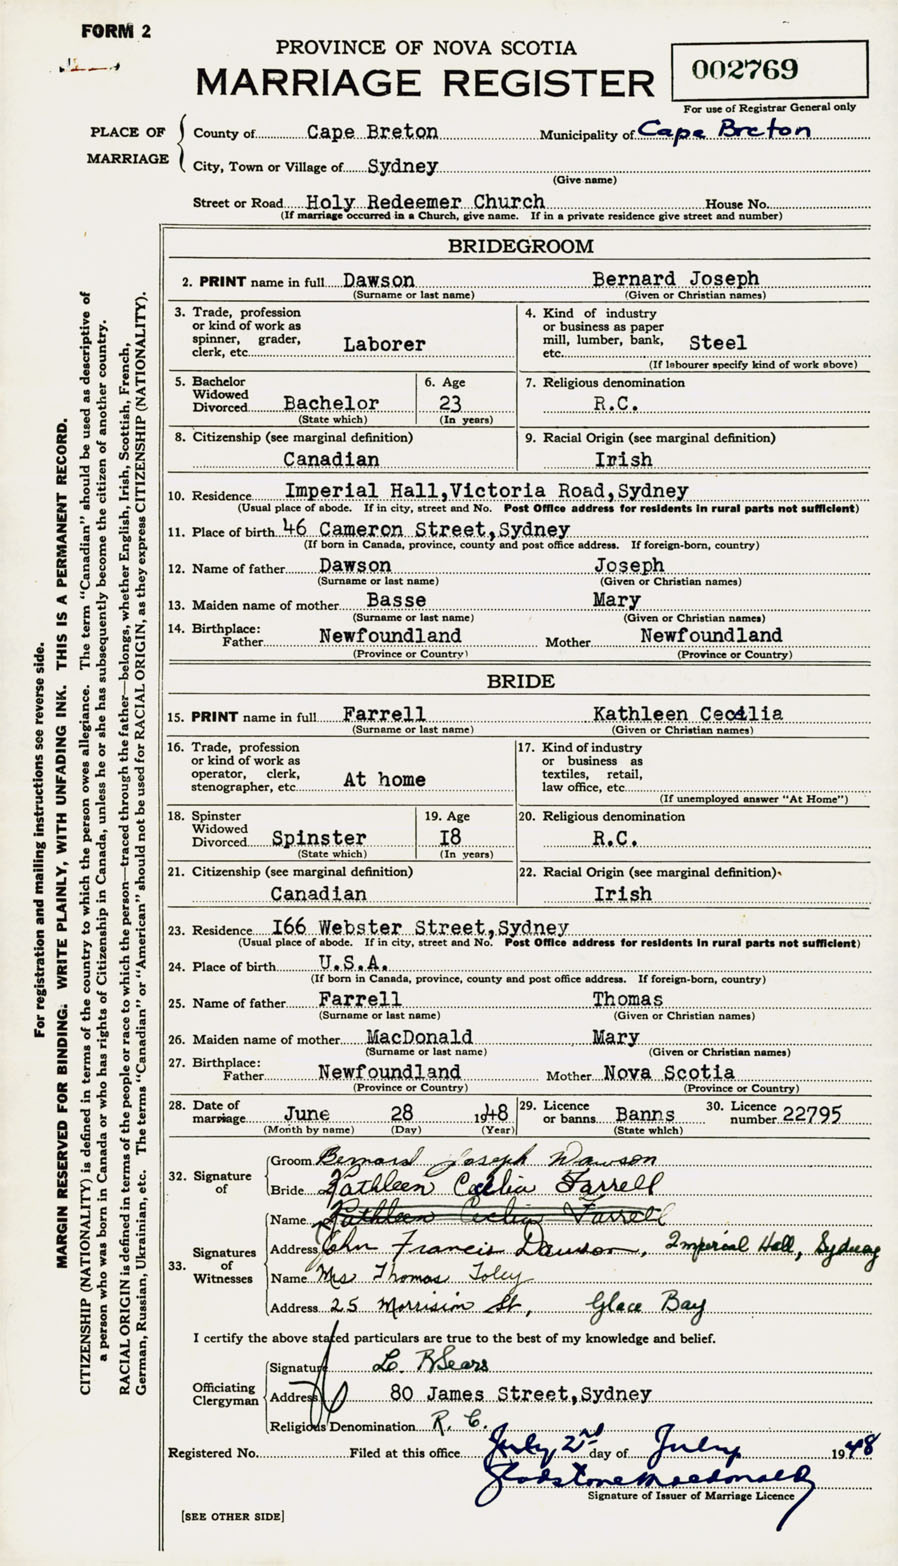 FORM 2
PROVINCE OF NOVA SCOTIA
MARRIAGE REGISTER
002769
For use of Registrar General only
PLACE OF MARRIAGE
County of Cape Breton Municipality of Cape Breton
City, Town or Village of Sydney
(Give name)
Street or Road Holy Redeemer Church House No.
(If marriage occurred in a Church, give name. If in a private residence give street and number)
BRIDEGROOM
2. PRINT name in full Dawson Bernard Joseph
(Surname or last name) (Given or Christian names)
3. Trade, profession or kind of work as spinner, grader, clerk, etc. Laborer
4. Kind of industry or business as paper mill, lumber, bank, etc. Steel
(If labourer specify kind of work above)
5. Bachelor Widowed Divorced Bachelor
(State which)
6. Age 23
(In years)
7. Religious denomination
R.C.
8. Citizenship (see marginal definition)
Canadian
9. Racial Origin (see marginal definition)
Irish
10. Residence Imperial Hall,Victoria Road,Sydney
(Usual place of abode. If in city, street and No. Post Office address for residents in rural parts not sufficient)
11. Place of birth 46 Cameron Street,Sydney
(If born in Canada, province, county and post office address. If foreign-born, country)
12. Name of father Dawson Joseph
(Surname or last name) (Given or Christian names)
13. Maiden name of mother Basse Mary
(Surname or last name) (Given or Christian names)
14. Birthplace:
Father Newfoundland Mother Newfoundland
(Province or Country) (Province or Country)
BRIDE
15. PRINT name in full Farrell Kathleen Cecilia
(Surname or last name) (Given or Christian names)
16. Trade, profession or kind of work as operator, clerk, stenographer, etc. At home
17. Kind of industry or business as textiles, retail, law office, etc.
(If unemployed answer "At Home")
18. Spinster Widowed Divorced Spinster
(State which)
19. Age I8
(In years)
20. Religious denomination
R.C.
21. Citizenship (see marginal definition)
Canadian
22. Racial Origin (see marginal definition)
Irish
23. Residence I66 Webster Street,Sydney
(Usual place of abode. If in city, street and No. Post Office address for residents in rural parts not sufficient)
24. Place of birth U.S.A.
(If born in Canada, province, county and post office address. If foreign-born, country)
25. Name of father Farrell Thomas
(Surname or last name) (Given or Christian names)
26. Maiden name of mother MacDonald Mary
(Surname or last name) (Given or Christian names)
27. Birthplace:
Father Newfoundland Mother Nova Scotia
(Province or Country) (Province or Country)
28. Date of marriage June 28 1948
(Month by name) (Day) (Year)
29. Licence or banns Banns
(State which)
30. Licence number 22795
32. Signature of
Groom Bernard Joseph Dawson
Bride Kathleen Cecilia Farrell
33. Signatures of Witnesses
Name Kathleen Cecilia Farrell
Address John Francis Dawson, Imperial Hall, Sydney
Name Mrs Thomas Foley
Address 25 Morrision St, Glace Bay
I certify the above stated particulars are true to the best of my knowledge and belief.
Officiating Clergyman
Signature L. B Sears
Address 80 James Street,Sydney
Religious Denomination R. C.
Registered No. Filed at this office July 2nd day of July 1948
Gladstone Macdonald
Signature of Issuer of Marriage Licence
[SEE OTHER SIDE]
For registration and mailing instructions see reverse side.
MARGIN RESERVED FOR BINDING. WRITE PLAINLY, WITH UNFADING INK. THIS IS A PERMANENT RECORD.
CITIZENSHIP (NATIONALITY) is defined in terms of the country to which the person owes allegiance. The term "Canadian" should be used as descriptive of
a person who was born in Canada or who has rights of Citizenship in Canada, unless he or she has subsequently become the citizen of another country.
RACIAL ORIGIN is defined in terms of the people or race to which the person—traced through the father—belongs, whether English, Irish, Scottish, French,
German, Russian, Ukrainian, etc. The terms "Canadian" or "American" should not be used for RACIAL ORIGIN, as they express CITIZENSHIP (NATIONALITY).